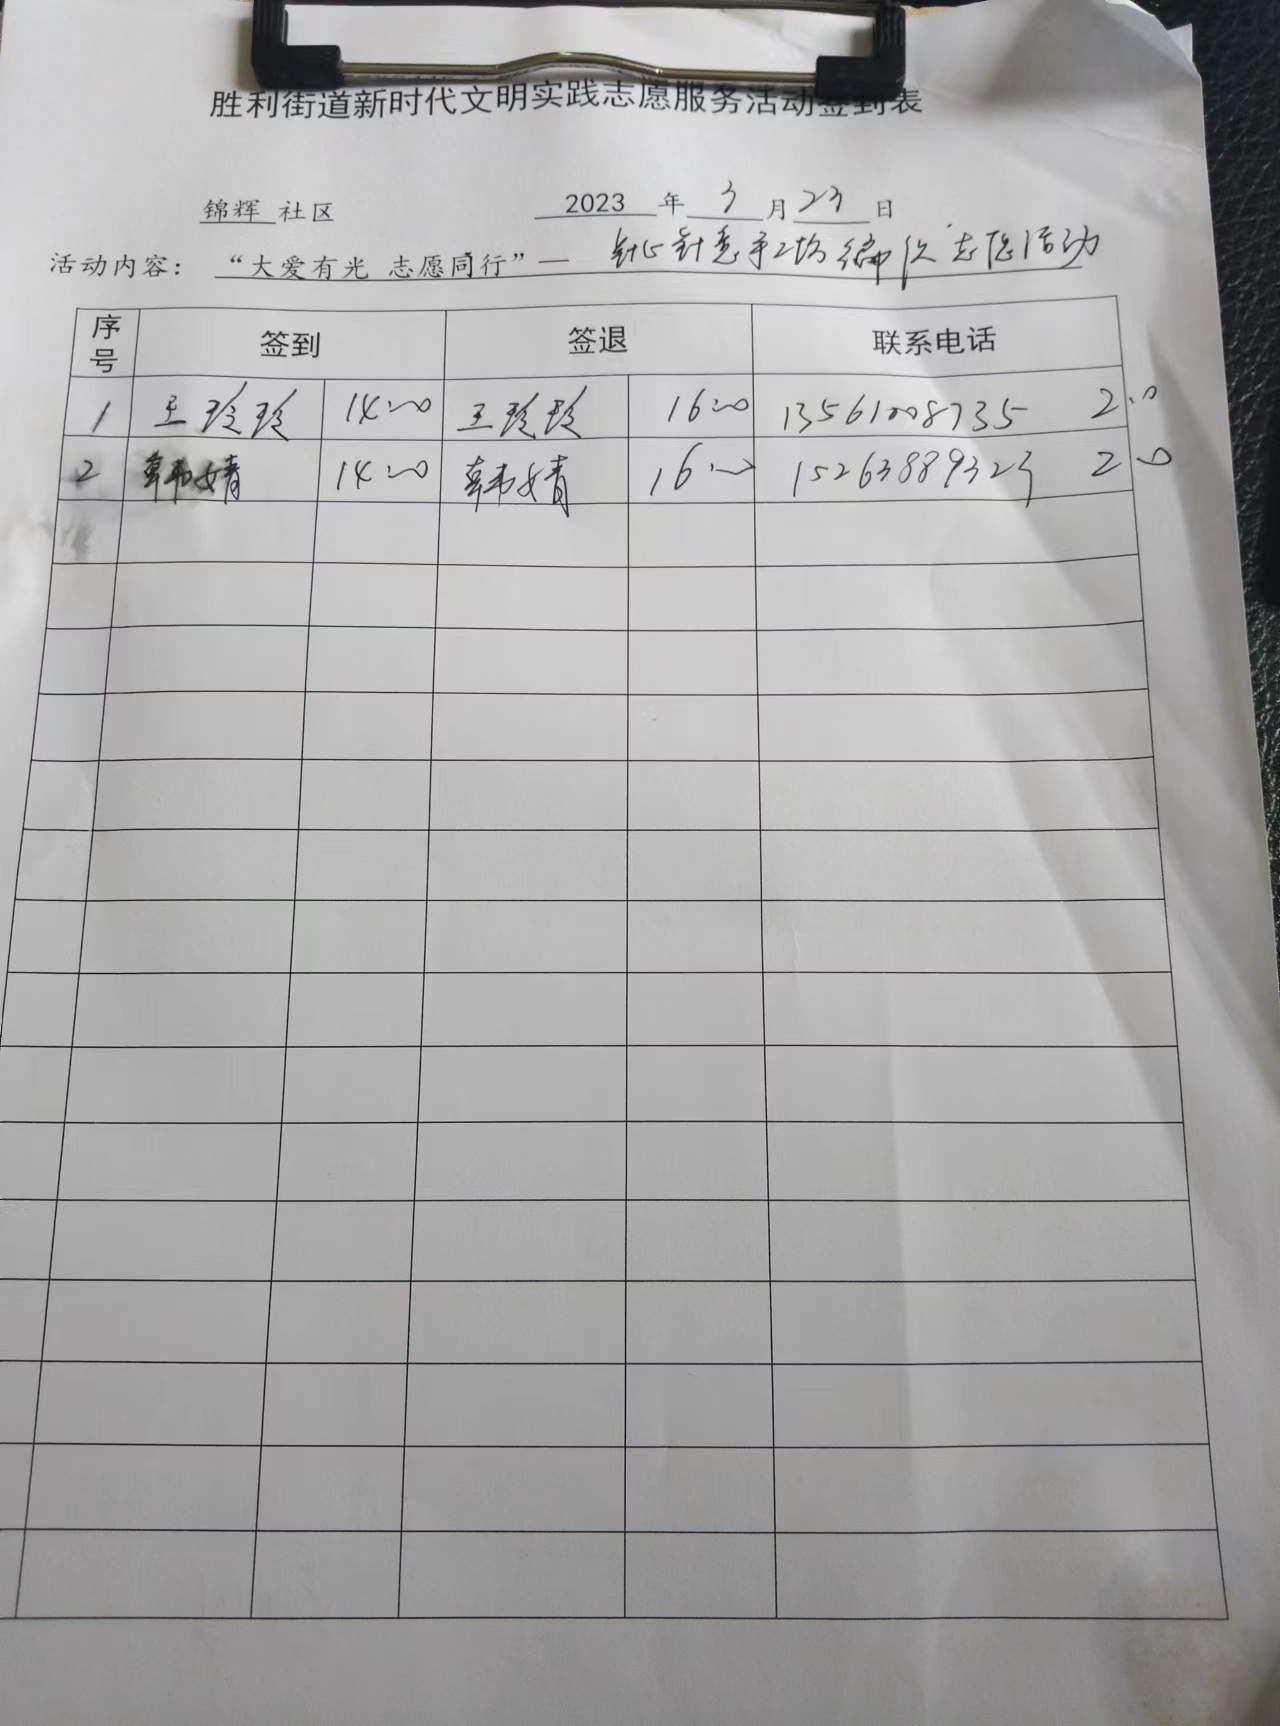 胜利街道新时代文明实践志愿服务活动签到表
锦辉 社区 2023 年 3 月 23 日
活动内容： “大爱有光 志愿同行”— 针心针意手工坊编织志愿活动
序号 签到 签退 联系电话
1 王玲玲 14:00 王玲玲 16:00 13561008735 2.0
2 韩婧 14:00 韩婧 16:00 15263889323 2.0